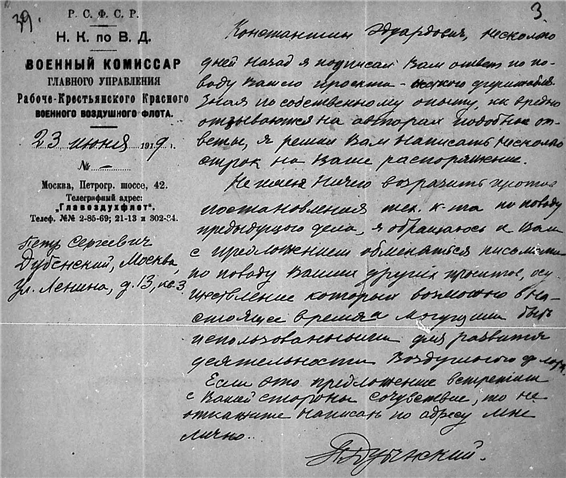 39.
Р. С. Ф. С. Р.
Н. К. по В. Д.
ВОЕННЫЙ КОМИССАР
ГЛАВНОГО УПРАВЛЕНИЯ
Рабоче-Крестьянского Красного
ВОЕННОГО ВОЗДУШНОГО ФЛОТА.
23 июня 1919 г.
№ –
Москва, Петрогр. шоссе, 42.
Телеграфный адрес:
„Главоздухфлот".
Телеф. №№ 2-85-69; 21-13 и 302-34.
Петр Сергеевич
Дубенский, Москва,
ул. Ленина, д. 13, кв. 3
3.
Константин Эдуардович, несколько
дней назад я подписал Вам ответ по по-
воду Вашего проекта
Зная по собственному опыту, как вредно
отзываются на авторах подобные от-
веты, я решил Вам написать несколько
строк на Ваше распоряжение.
Не имея ничего возразить против
постановления тех. к-та по поводу
предыдущего дела, я обращаюсь к Вам
с предложением обменяться письмами
по поводу Ваших других проектов, осу-
ществление которых возможно в на-
стоящее время и могущими быть
использованными для развития
деятельности Воздушного флота.
Если это предложение встретит
с Вашей стороны сочувствие, то не
откажите написать по адресу мне
лично.